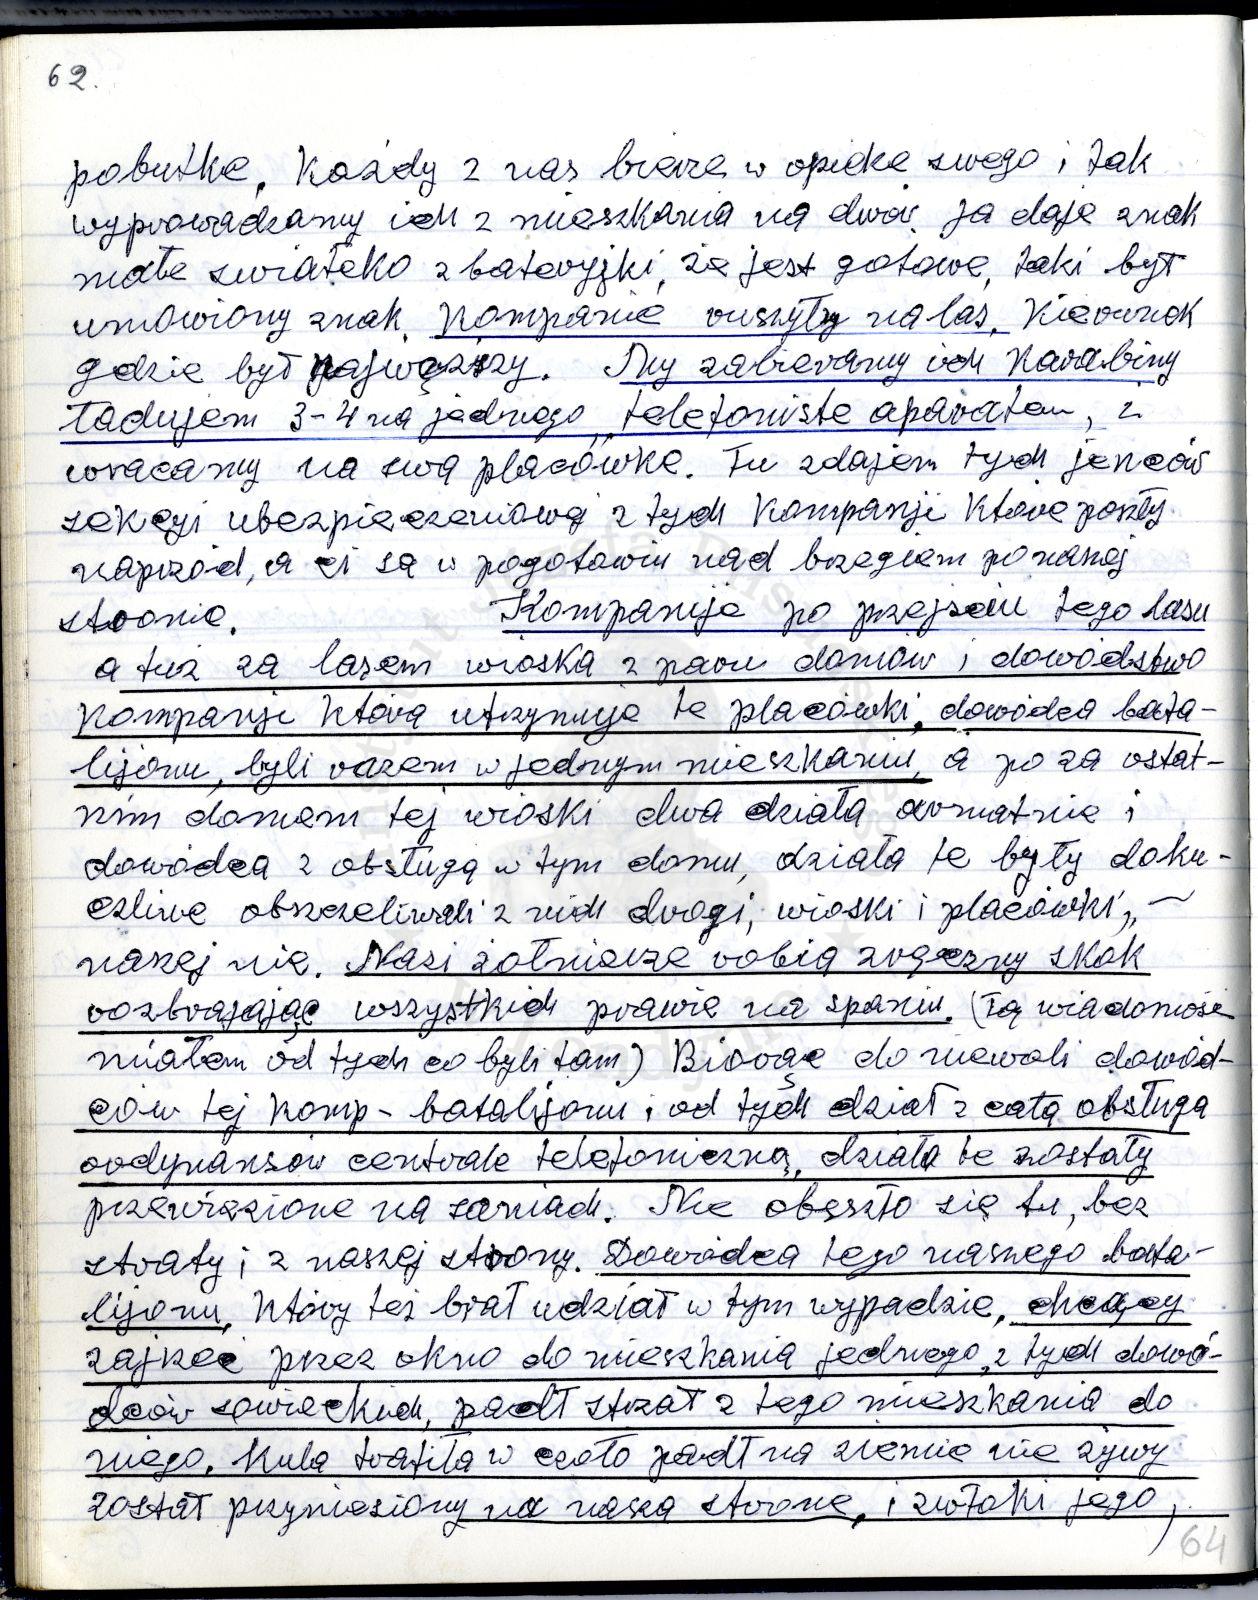 62.
pobutkę. Każdy z nas bierze w opiekę swego i tak
wyprowadzamy ich z mieszkania na dwór, ja daję znak
małe swiatełko z bateryjki, że jest gotowe, taki był
umowiony znak. Kompanie ruszyły na las, kierunek
gdzie był najwęższy. My zabieramy ich karabiny
ładujem 3-4 na jednego, telefoniste aparatem, i
wracamy na swą placówkę. Tu zdajem tych jenców
sekcyi ubezpieczeniowej z tych kompanji które poszły
naprzód, a ci są w pogotowiu nad brzegiem po naszej
stronie. Kompanije po przejsciu tego lasu
a tuż za lasem wioska z paru domów i dowództwo
kompanji która utrzymuje te placówki, dowódca bata-
lijonu, byli razem w jednym mieszkaniu, a po za ostat-
nim domem tej wioski dwa działa armatnie i
dowódca z obsługą w tym domu, działa te były doku-
czliwe obszczeliwali z nich drogi, wioski i placówki,
naszej nie. Nasi żołnierze robią zręczny skok
rozbrajając wszystkich prawie na spaniu. (Tą wiadomość
miałem od tych co byli tam) Biorąc do niewoli dowód-
ców tej komp- batalijonu i od tych dział z całą obsługą
ordynansów centrale telefoniczną, działa te zostały
przewiezione na saniach. Nie obeszło się tu, bez
straty i z naszej strony. Dowódca tego naszego bata-
lijonu, który też brał udział w tym wypadzie, chcący
zajrzeć przez okno do mieszkania jednego z tych dowó-
dców sowieckich, padł strzał z tego mieszkania do
niego. Kula trafiła w czoło padł na ziemie nie żywy
został przyniesiony na naszą stronę, i zwłoki jego,
64
Instytut Józefa Piłsudskiego
Londynie